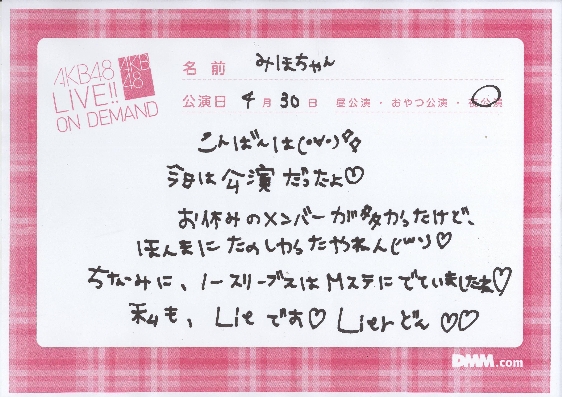 AKB48
LIVE!!
ON DEMAND
AKB
48
名前 みほちゃん
公演日 4月30日 昼公演・おやつ公演・夜公演
こんばんは(・∀・)
今日は公演だったよ♡
お休みのメンバーが多かったけど、
ほんまにたのしかったやねん(･w･)♡
ちなみに、ノースリーブスはMステにでていましたね♡
私も、Lieです♡Lierどん♡♡
DMM.com